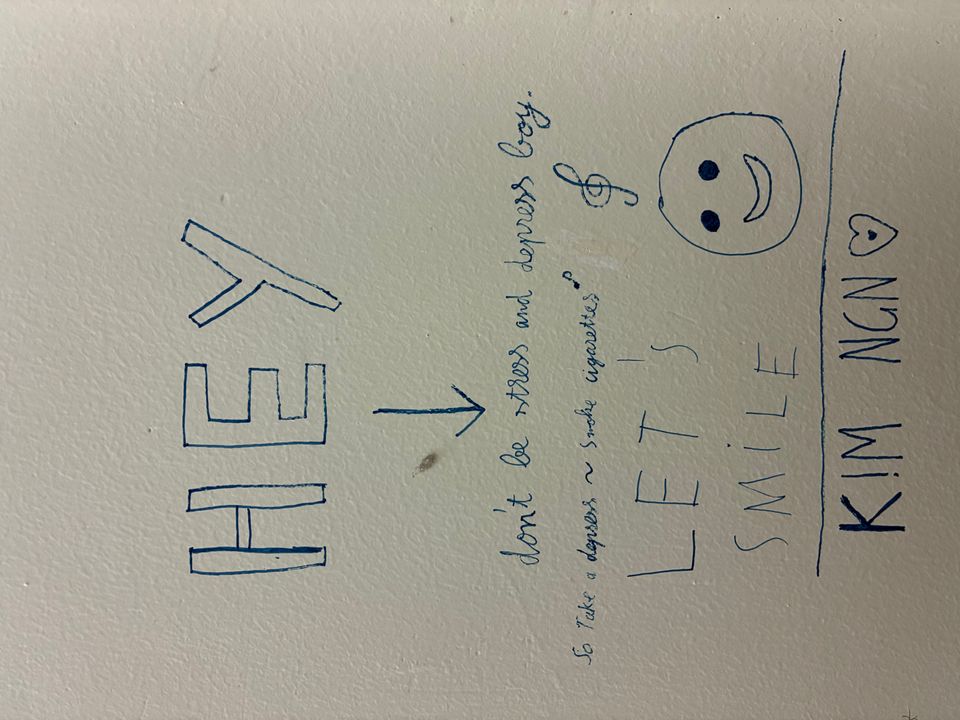 HEY
don't be stress and depress boy.
So Take a depress ~ Smoke cigarettes
LET'S
SMiLE
KIM NGN